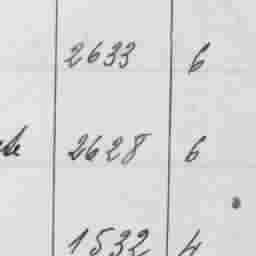 2633 6
2628 6
1532 4